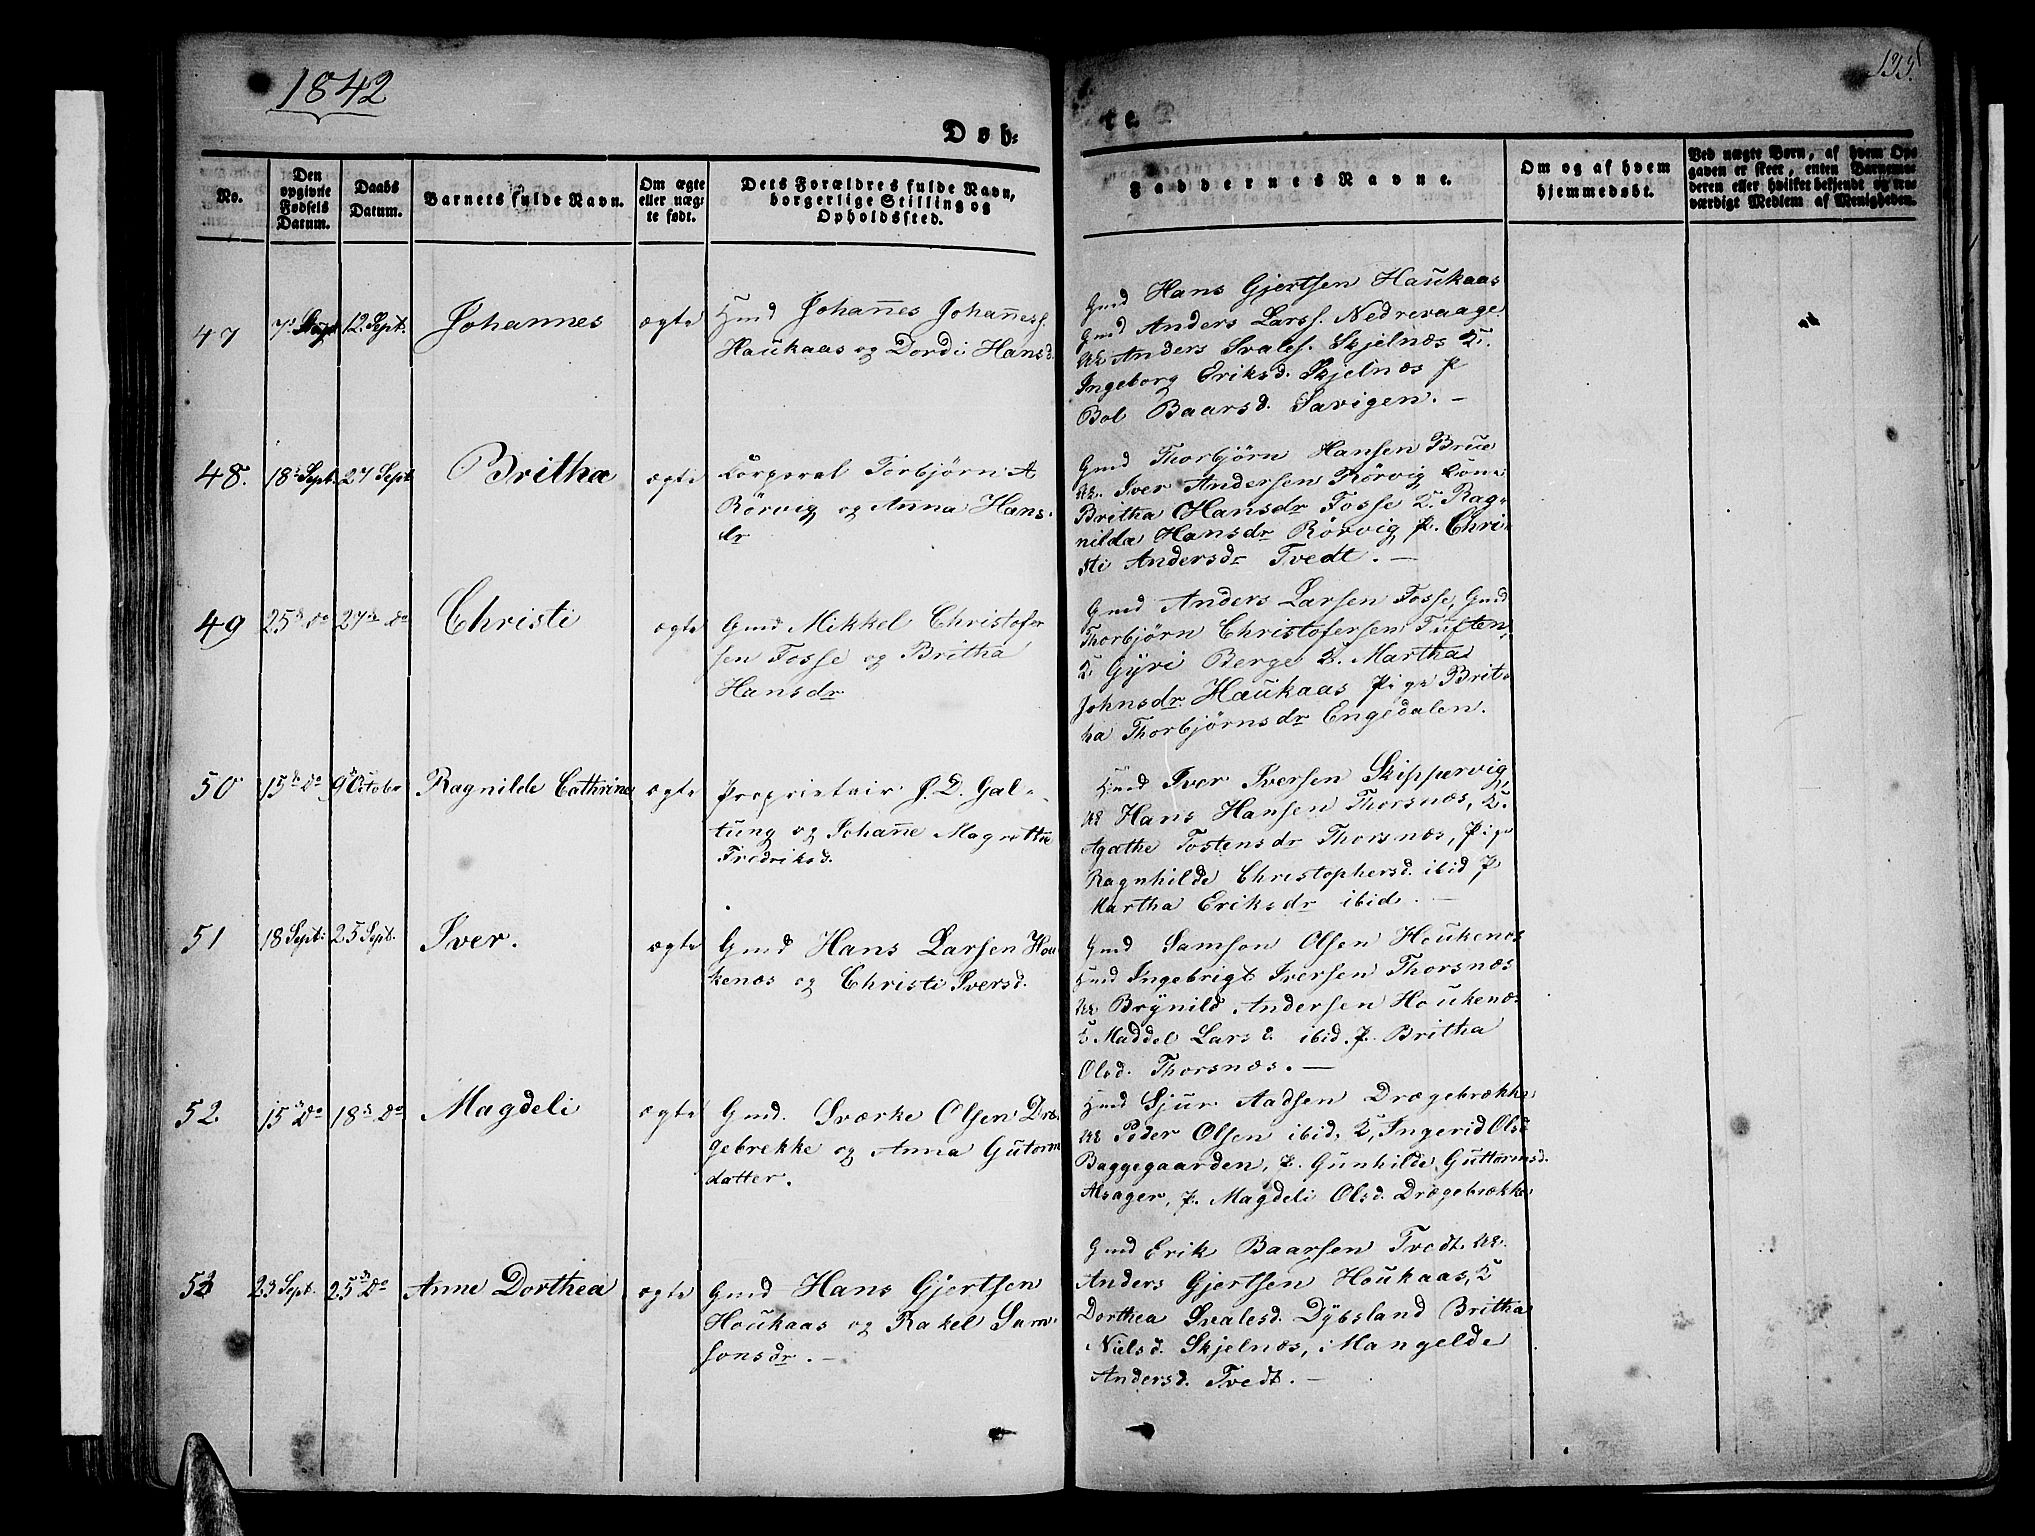 1842
135.
Døb-
te.
No.
Den opgivne Fødsels Datum.
Daabs Datum.
Barnets fulde Navn.
Om ægte eller uægte født.
Dets Forældres fulde Navn, borgerlige Stilling og Opholdssted.
Faddernes Navne.
Om og af hvem hjemmedøbt.
47
12 Sept.
Johannes
ægte
Hmd Johan̄es Johan̄ess.
Haukaas og Dordi Hansd.
Gmd Hans Gjertsen Haukaas
Gmd Anders Larss. Nedrevaage
Uk Anders Svales. Skjelnæs K.
Ingeborg Eriksd. Skjelnæs P
Bol Baarsd. Savigen. —
48.
18 Sept.
27 Sept
Britha
ægte
Corporal Torbjørn A
Rörvig og Anna Hans-
dr
Gmd Thorbjörn Hansen Brue
Uk. Iver Andersen Rörvig Kone
Britha Hansdr Fosse K. Rag-
nilda Hansdr Rörvig P. Chri-
sti Andersdr Tvedt. —
49
25 do
27 do
Christi
ægte
Gmd Mikkel Christofer
sen Fosse og Britha
Hansdr
Gmd Anders Larsen Fosse, Gmd
Thorbjörn Christofersen Tuften,
K. Gyri Berge K. Martha
Johnsdr Haukaas Pige Brit-
ha Thorbjörnsdr Engedalen.
50
15 do
9 October
Ragnilde Cathrine
ægte
Proprietair J. D. Gal-
tung og Johan̄e Magrethe
Fredriksd.
Hmd Iver Iversen Skippervig,
Uk Hans Hansen Thorsnæs, K.
Agathe Tostensdr Thorsnæs, Pige
Ragnhilde Christophersd. ibid P
Martha Eriksdr ibid. —
51
18 Sept:
25 Sept.
Iver.
ægte
Gmd Hans Larsen Hou
kenæs og Christi Iversd.
Gmd Samson Olsen Houkenæs
Hmd Ingebrigt Iversen Thorsnæs
Uk Brynild Andersen Houkenæs
K Maddel Larsd. ibid. P. Britha
Olsd. Thorsnæs. —
52.
15 do
18 do
Magdeli
ægte
Gmd. Sværke Olsen Dræ
gebrekke og Anna Gutorm
datter.
Hmd Sjur Aadsen Drægebrække
Uk Peder Olsen ibid, K, Ingerid Olsd
Baggegaarden, P. Gunhilde Guttormsd.
Alsager, P. Magdeli Olsd. Drægebrække
53
23 Sept.
25 do
Anne Dorthea
ægte
Gmd Hans Gjertsen
Houkaas og Rakel Sam-
sonsdr. —
Gmd Erik Baarsen Tvedt. Uk.
Anders Gjertsen Houkaas, K
Dorthea Svalesd. Dybsland Britha
Nielsd. Skjelnæs, Mangelde
Andersd. Tvedt. —